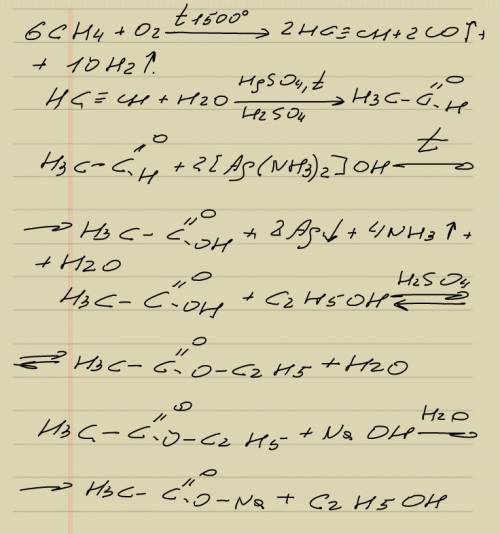 6CH4 + O2 t 1500° → 2HC≡CH + 2CO↑ +
+ 10H2↑
HC≡CH + H2O HgSO4, t → H2SO4 H3C-C=O-H
H3C-C=O-H + 2[Ag(NH3)2]OH t →
→ H3C-C=O-OH + 2Ag↓ + 4NH3↑ +
+ H2O
H3C-C=O-OH + C2H5OH H2SO4 ⇌
⇌ H3C-C=O-O-C2H5 + H2O
H3C-C=O-O-C2H5 + NaOH H2O →
→ H3C-C=O-O-Na + C2H5OH